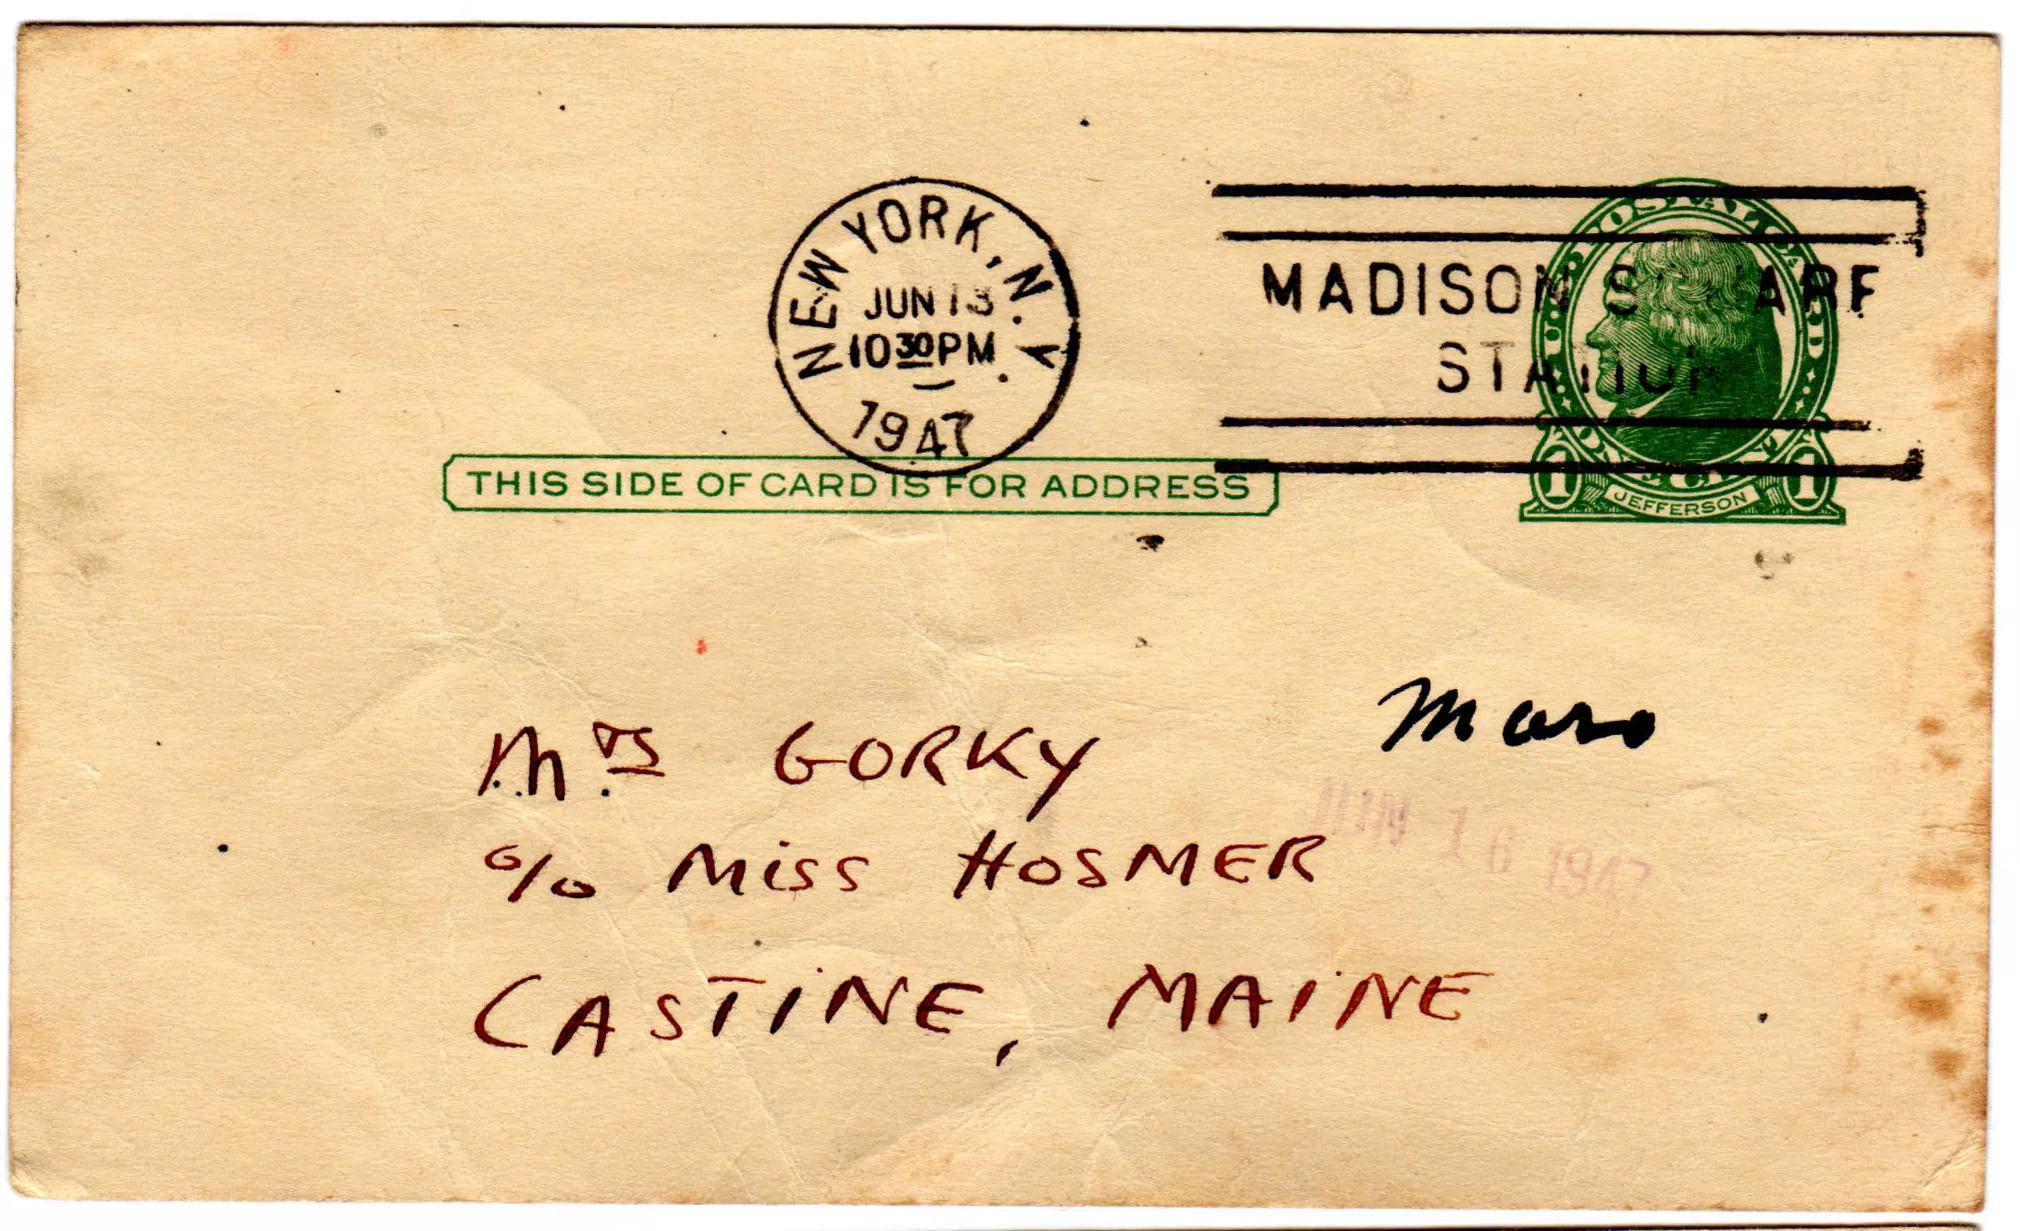 NEW YORK, N.Y.
JUN 13
10 30 PM
1947
MADISON SQUARE
STATION
U.S. POSTAL CARD
ONE CENT
1 JEFFERSON 1
THIS SIDE OF CARD IS FOR ADDRESS
Mrs GORKY
c/o Miss HOSMER
JUN 16 1947
CASTINE, MAINE